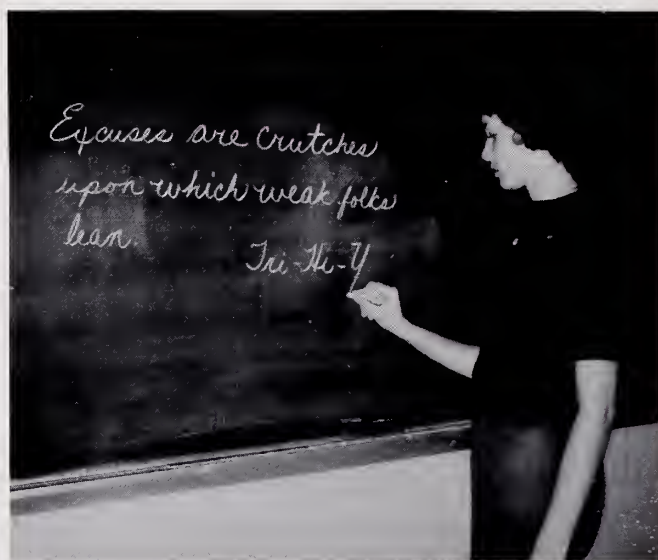 Excuses are Crutches
upon which weak folks
lean.
Tri-Hi-Y